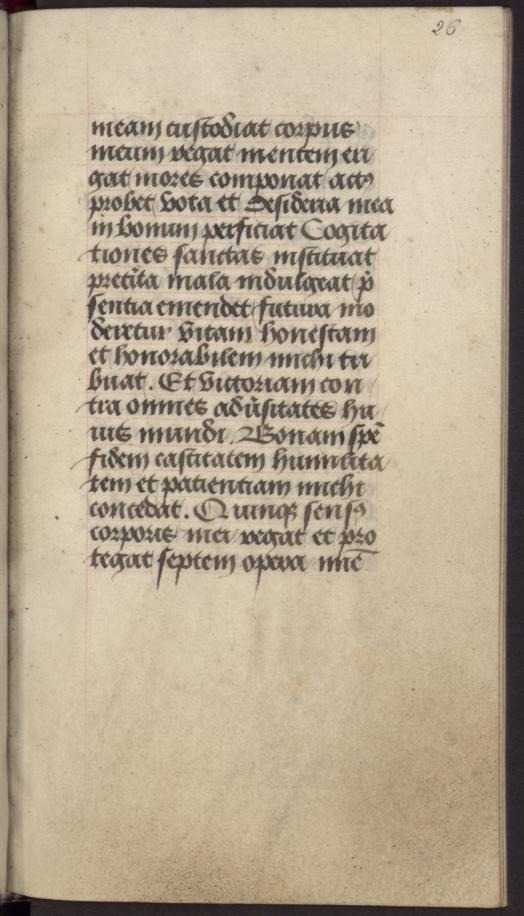 26
meam custodiat corpus
meum regat mentem eri
gat mores componat actꝯ
probet vota et desideria mea
in bonum perficiat Cogita
tiones sanctas instituat
preterita mala indulgeat p̄
sentia emendet futura mo
deretur vitam honestam
et honorabilem michi tri
buat. Et victoriam con
tra omnes adūsitates hu
ius mundi. Bonam spē
fidem castitatem humilita
tem et patientiam michi
concedat. Quinqꝫ sensꝯ
corporis mei regat et pro
tegat septem opera mīē